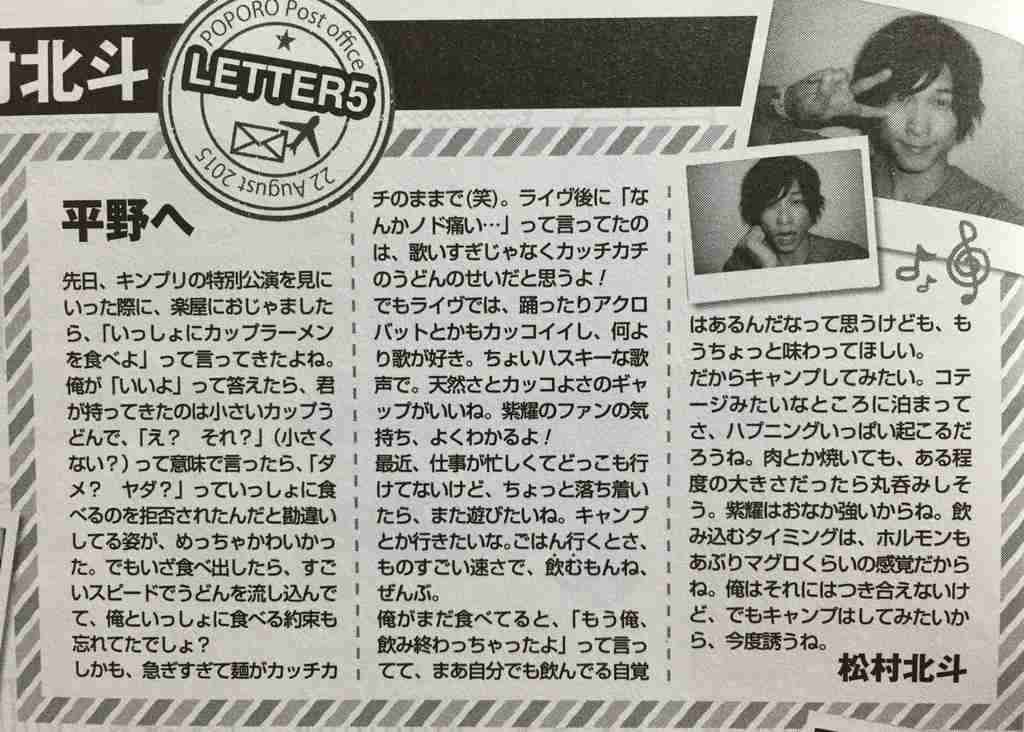 村北斗
POPORO Post office
LETTER5
22 August 2015
平野へ
先日、キンプリの特別公演を見に
いった際に、楽屋におじゃましたと
ら、「いっしょにカップラーメン
を食べよ」って言ってきたよね。
俺が「いいよ」って答えたら、君
が持ってきたのは小さいカップう
どんで、「え?　それ?」(小さく
ない?)って意味で言ったら、「ダ
メ?　ヤダ?」っていっしょに食
べるのを拒否されたんだと勘違い
してる姿が、めっちゃかわいかっ
た。でもいざ食べ出したら、すご
いスピードでうどんを流し込んで
て、俺といっしょに食べる約束も
忘れてたでしょ?
しかも、急ぎすぎて麺がカッチカ
チのままで(笑)。ライヴ後に「な
んかノド痛い…」って言ってたの
は、歌いすぎじゃなくカッチカチ
のうどんのせいだと思うよ!
でもライヴでは、踊ったりアクロ
バットとかもカッコイイし、何よ
り歌が好き。ちょいハスキーな歌
声で。天然さとカッコよさのギャ
ップがいいね。紫耀のファンの気
持ち、よくわかるよ!
最近、仕事が忙しくてどっこも行
けてないけど、ちょっと落ち着い
たら、また遊びたいね。キャンプ
とか行きたいな。ごはん行くとさ、
ものすごい速さで、飲むもんね、
ぜんぶ。
俺がまだ食べてると、「もう俺、
飲み終わっちゃったよ」って言っ
てて、まあ自分でも飲んでる自覚
はあるんだなって思うけども、も
うちょっと味わってほしい。
だからキャンプしてみたい。コテ
ージみたいなところに泊まって
さ、ハプニングいっぱい起こるだ
ろうね。肉とか焼いても、ある程
度の大きさだったら丸呑みしそ
う。紫耀はおなか強いからね。飲
み込むタイミングは、ホルモンも
あぶりマグロくらいの感覚だから
ね。俺はそれにはつき合えないけ
ど、でもキャンプはしてみたいか
ら、今度誘うね。
松村北斗